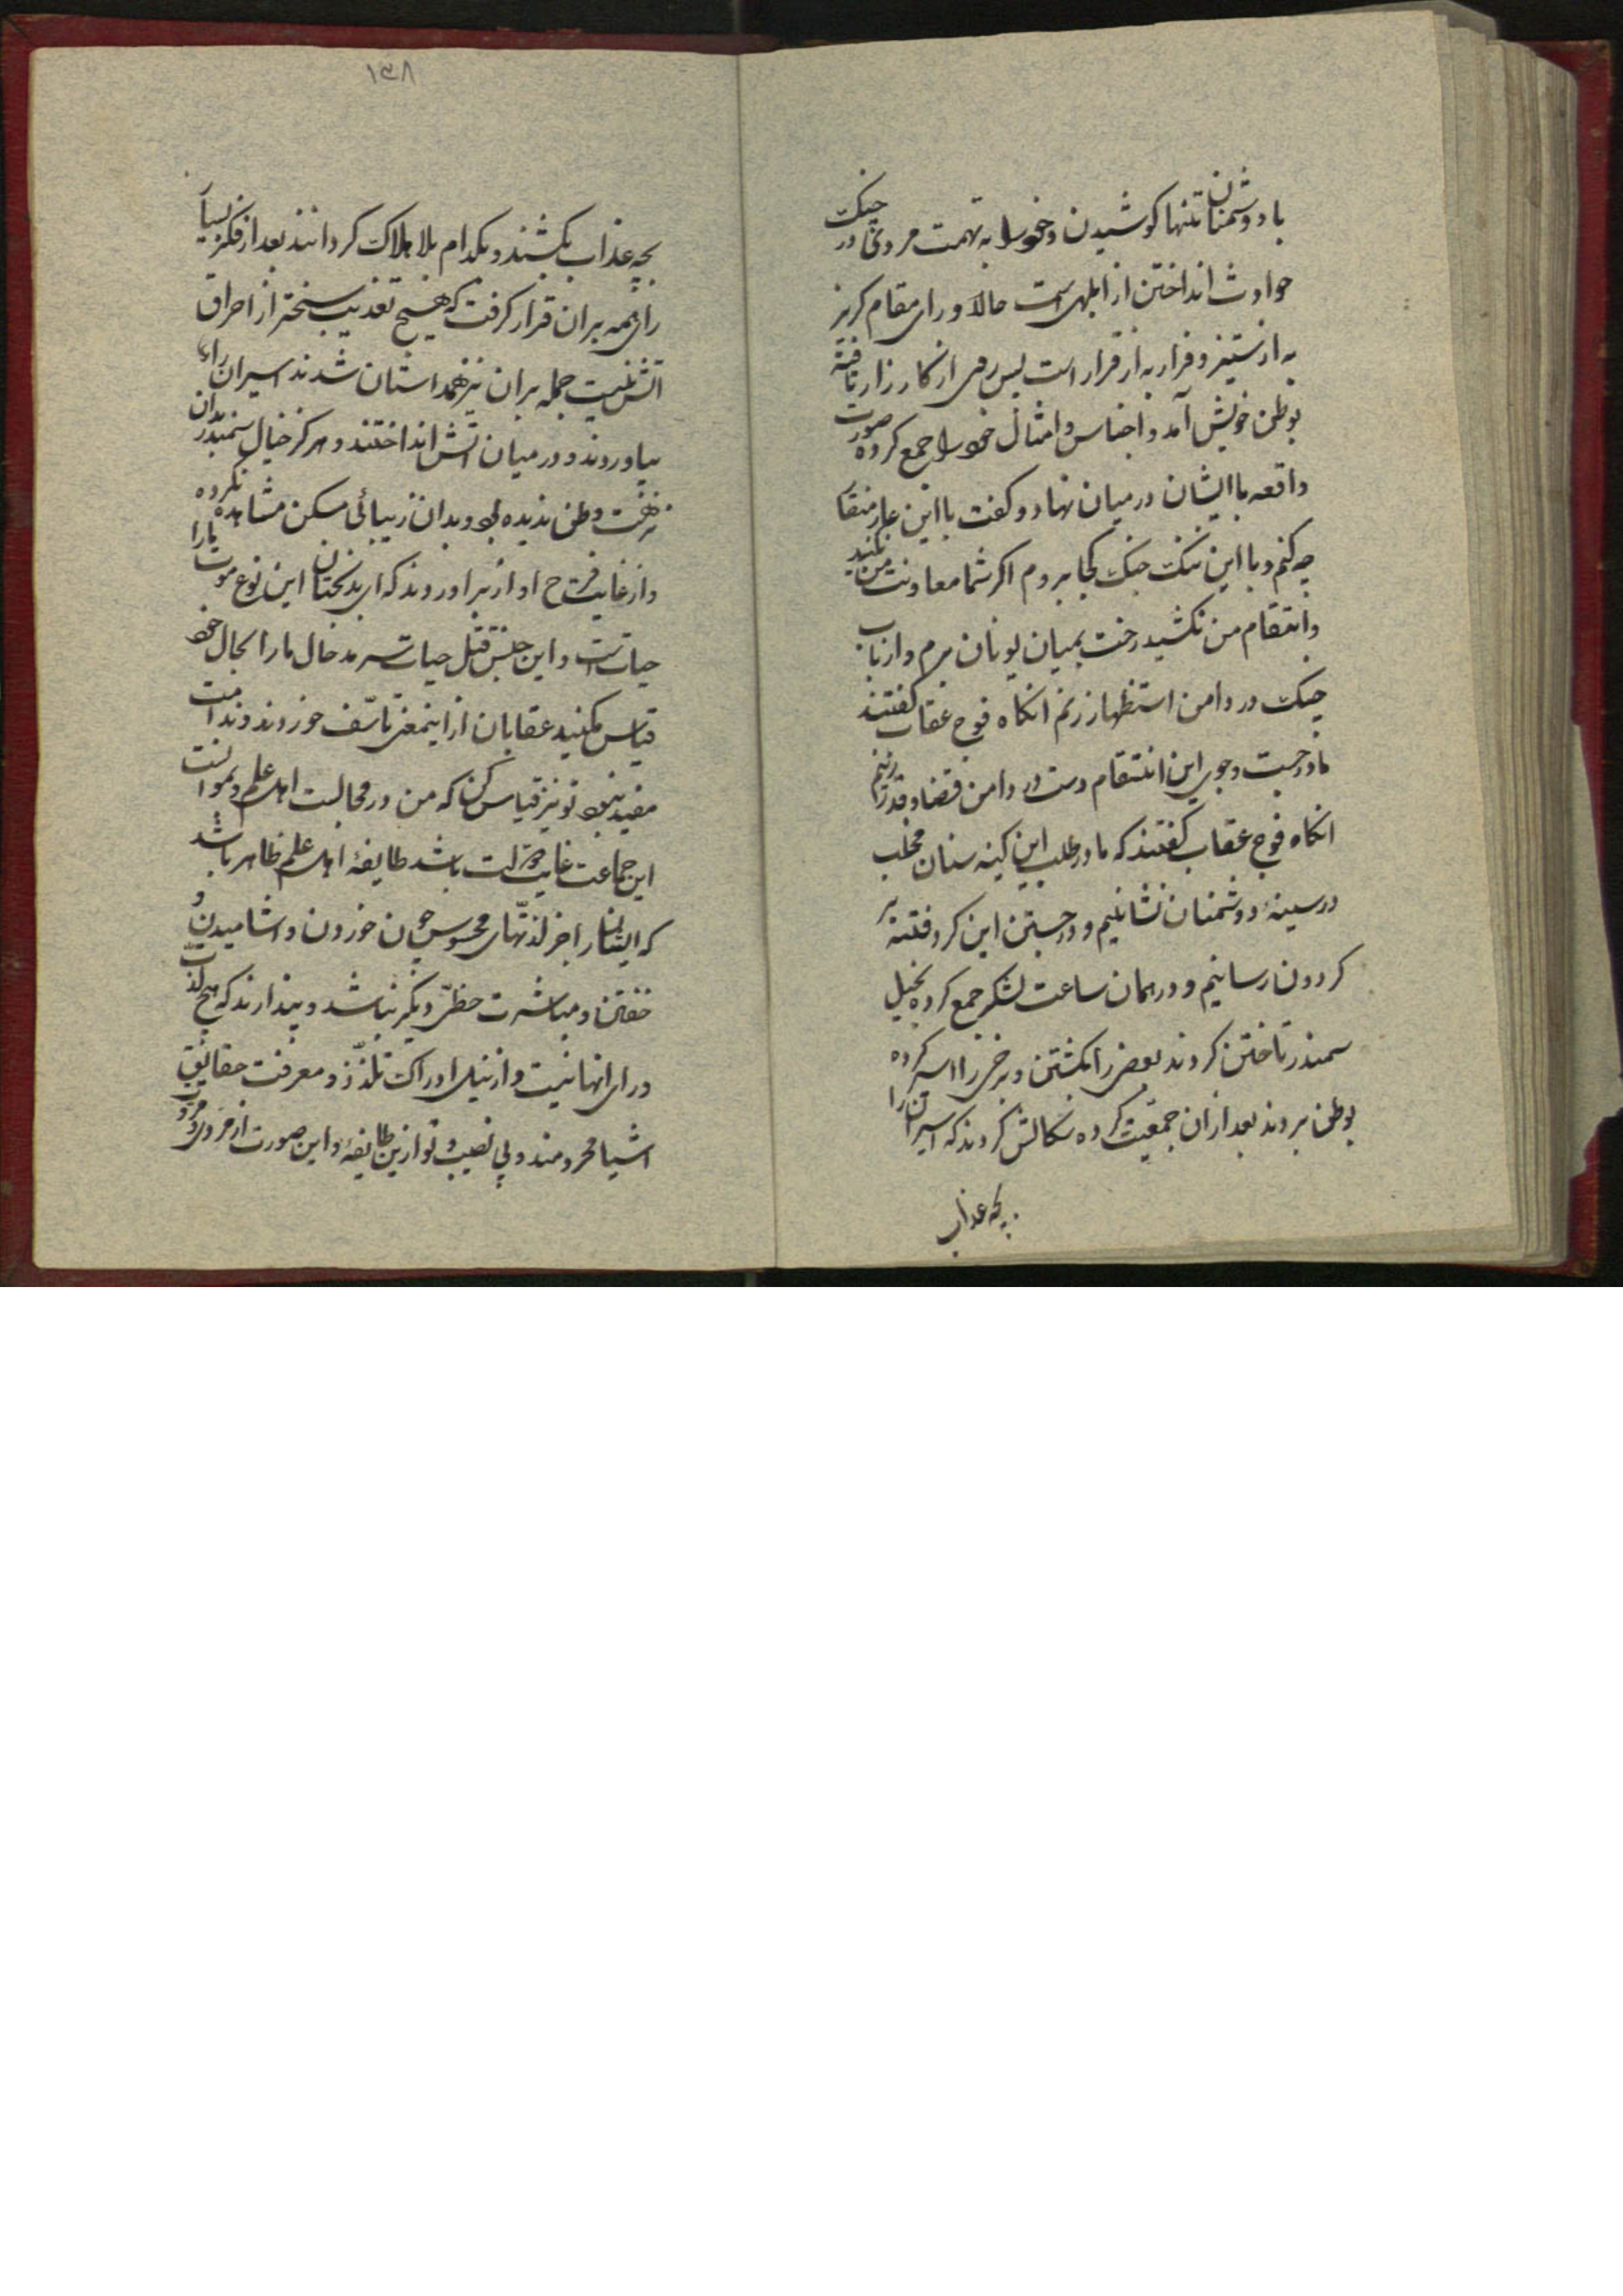 با دوشمنان تنها کوشیدن و خود را به تهمت مردی در جنک
حوادث انداختن از ابلهی است حالا ورای مقام کریز
به از ستیز و فرار به از قرار است پس روی از کارزار تافته
بوطن خویش آمد و اجناس و امثال خود را جمع کرده صورت
واقعه با ایشان در میان نهاد و کفت با این عار منقار
چه کنم و با این ننک جنک کجا بروم اکر شما معاونت من نکنید
وانتقام من نکشید رخت بمیان بومان برم و از باب
جنک در دامن استظهار زنم انکاه فوج عقاب کفتند
ما در جست وجوی این انتقام دست در دامن قضا و قدر زنیم
انکاه فوج عقاب کفتند که ما در طلب این کینه سنان مخلب
در سینهٔ دوشمنان نشانیم و در جستن این کرد فتنه بر
کردون رسانیم و در همان ساعت لشکر جمع کرده بخیل
سمندر تاختن کردند بعضی را بکشتن و برخی را اسیر کرده
بوطن بردند بعد ازان جمعیت کرده سکالش کردند که اسیران را
بچه عذاب
۱۳۸
بچه عذاب بکشند و بکدام بلا هلاک کردانند بعد از فکر بسیار
رای همه بران قرار کرفت که هیچ تعذیب سختر از احراق
اتش نیست جمله بران نیز همداستان شدند اسیران را
بیاوردند و در میان اتش انداختند و هرکز خیال سمندر بدان
نزهت وطن ندیده بود و بدان زیبائی مسکن مشاهده نکرده
و از غایت فرح اواز براوردند که ای بدبختان این نوع موت یارا
حیاتست و این جنس قتل حیات سرمد حال مارا بحال خود
قیاس مکنید عقابان از اینمعنی تاسّف خوردند و ندامت
مفید نبود تو نیز قیاس کن که من در مجالست اهل علم و بموانست
این جماعت غایت لذت باشد طایفهٔ اهل علم ظاهر باشد
که ایشانرا جز لذتهای محسوس چون خوردن و اشامیدن و
خفتن و مباشرت حظّی دیکر نباشد و پندارند که هیچ لذّت
ورای انها نیست و از نیل ادراک تلذّذ و معرفت حقایق
اشیا محرومند و بی نصیب و تو ازین طایفهٔ و این صورت از